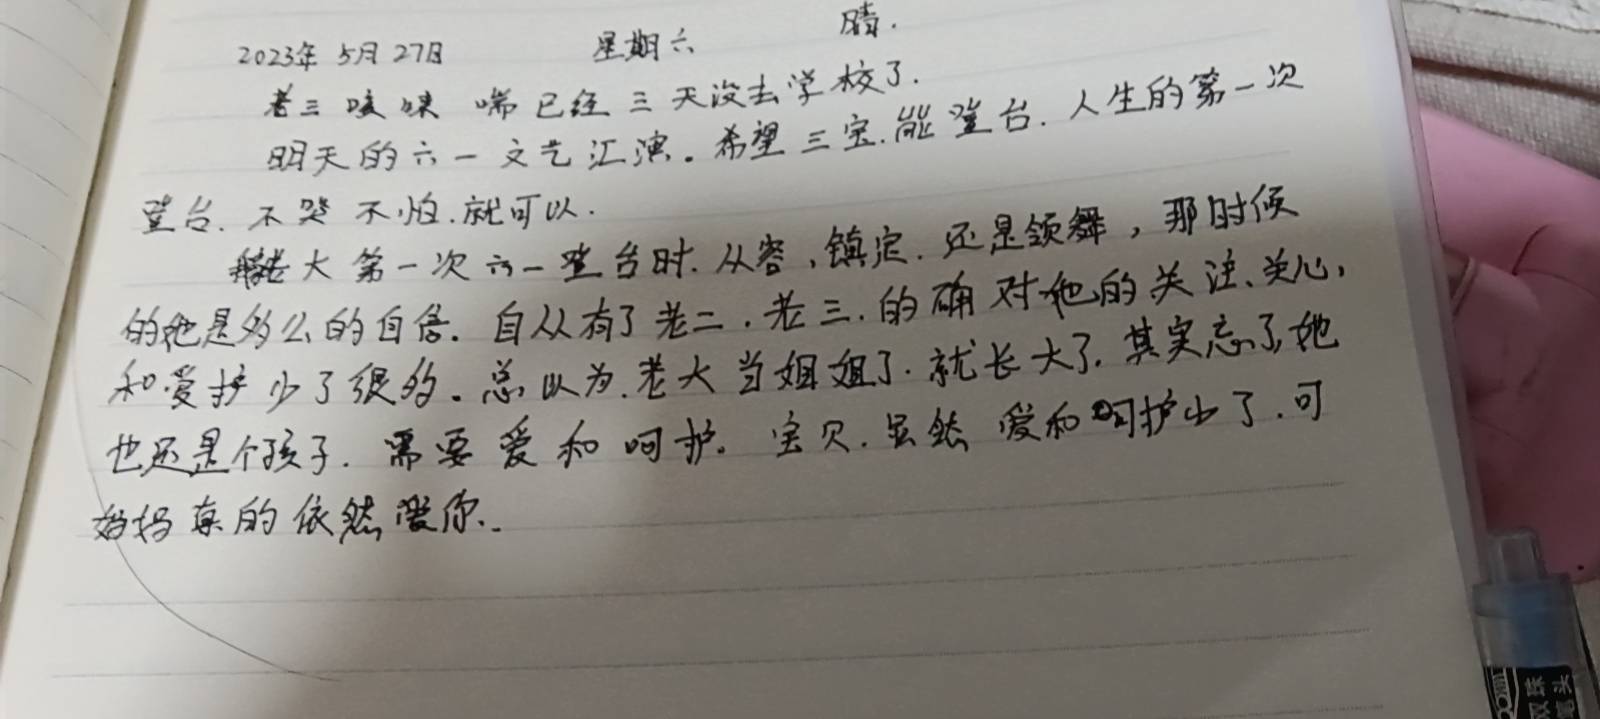 2023年 5月 27日 星期六 晴.
老三咳嗽 喘已经三天没去学校了.
明天的六一文艺汇演。希望三宝.能登台.人生的第一次
登台.不哭不怕.就可以.
老大第一次六一登台时.从容、镇定.还是领舞，那时候
的她是多么的自信。自从有了老二.老三.的确对她的关注、关心，
和爱护少了很多。总以为.老大当姐姐了.就长大了.其实忘了她
也还是个孩子.需要爱和呵护。宝贝.虽然 爱和呵护少了.可
妈妈真的依然爱你..
双珠
笔头